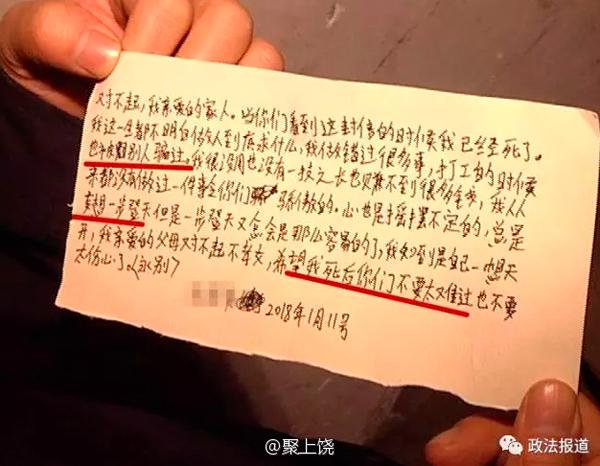 对不起,我亲爱的家人。当你们看到这封信的时候我已经死了。
我这一生都不明白做人到底求什么,我做错过很多事,打工的时候
也被别人骗过,我很没用也没有一技之长也赚不到很多金钱,我从
来都没有做过一件事令你们骄傲的。心也是摇摆不定的,总是
想一步登天但是一步登天又怎会是那么容易的了,我知到是自己想天
开,我亲爱的父母对不起不孝女,希望我死后你们不要太难过也不要
太伤心了。(永别)
2018年1月11号
@聚上饶
政法报道